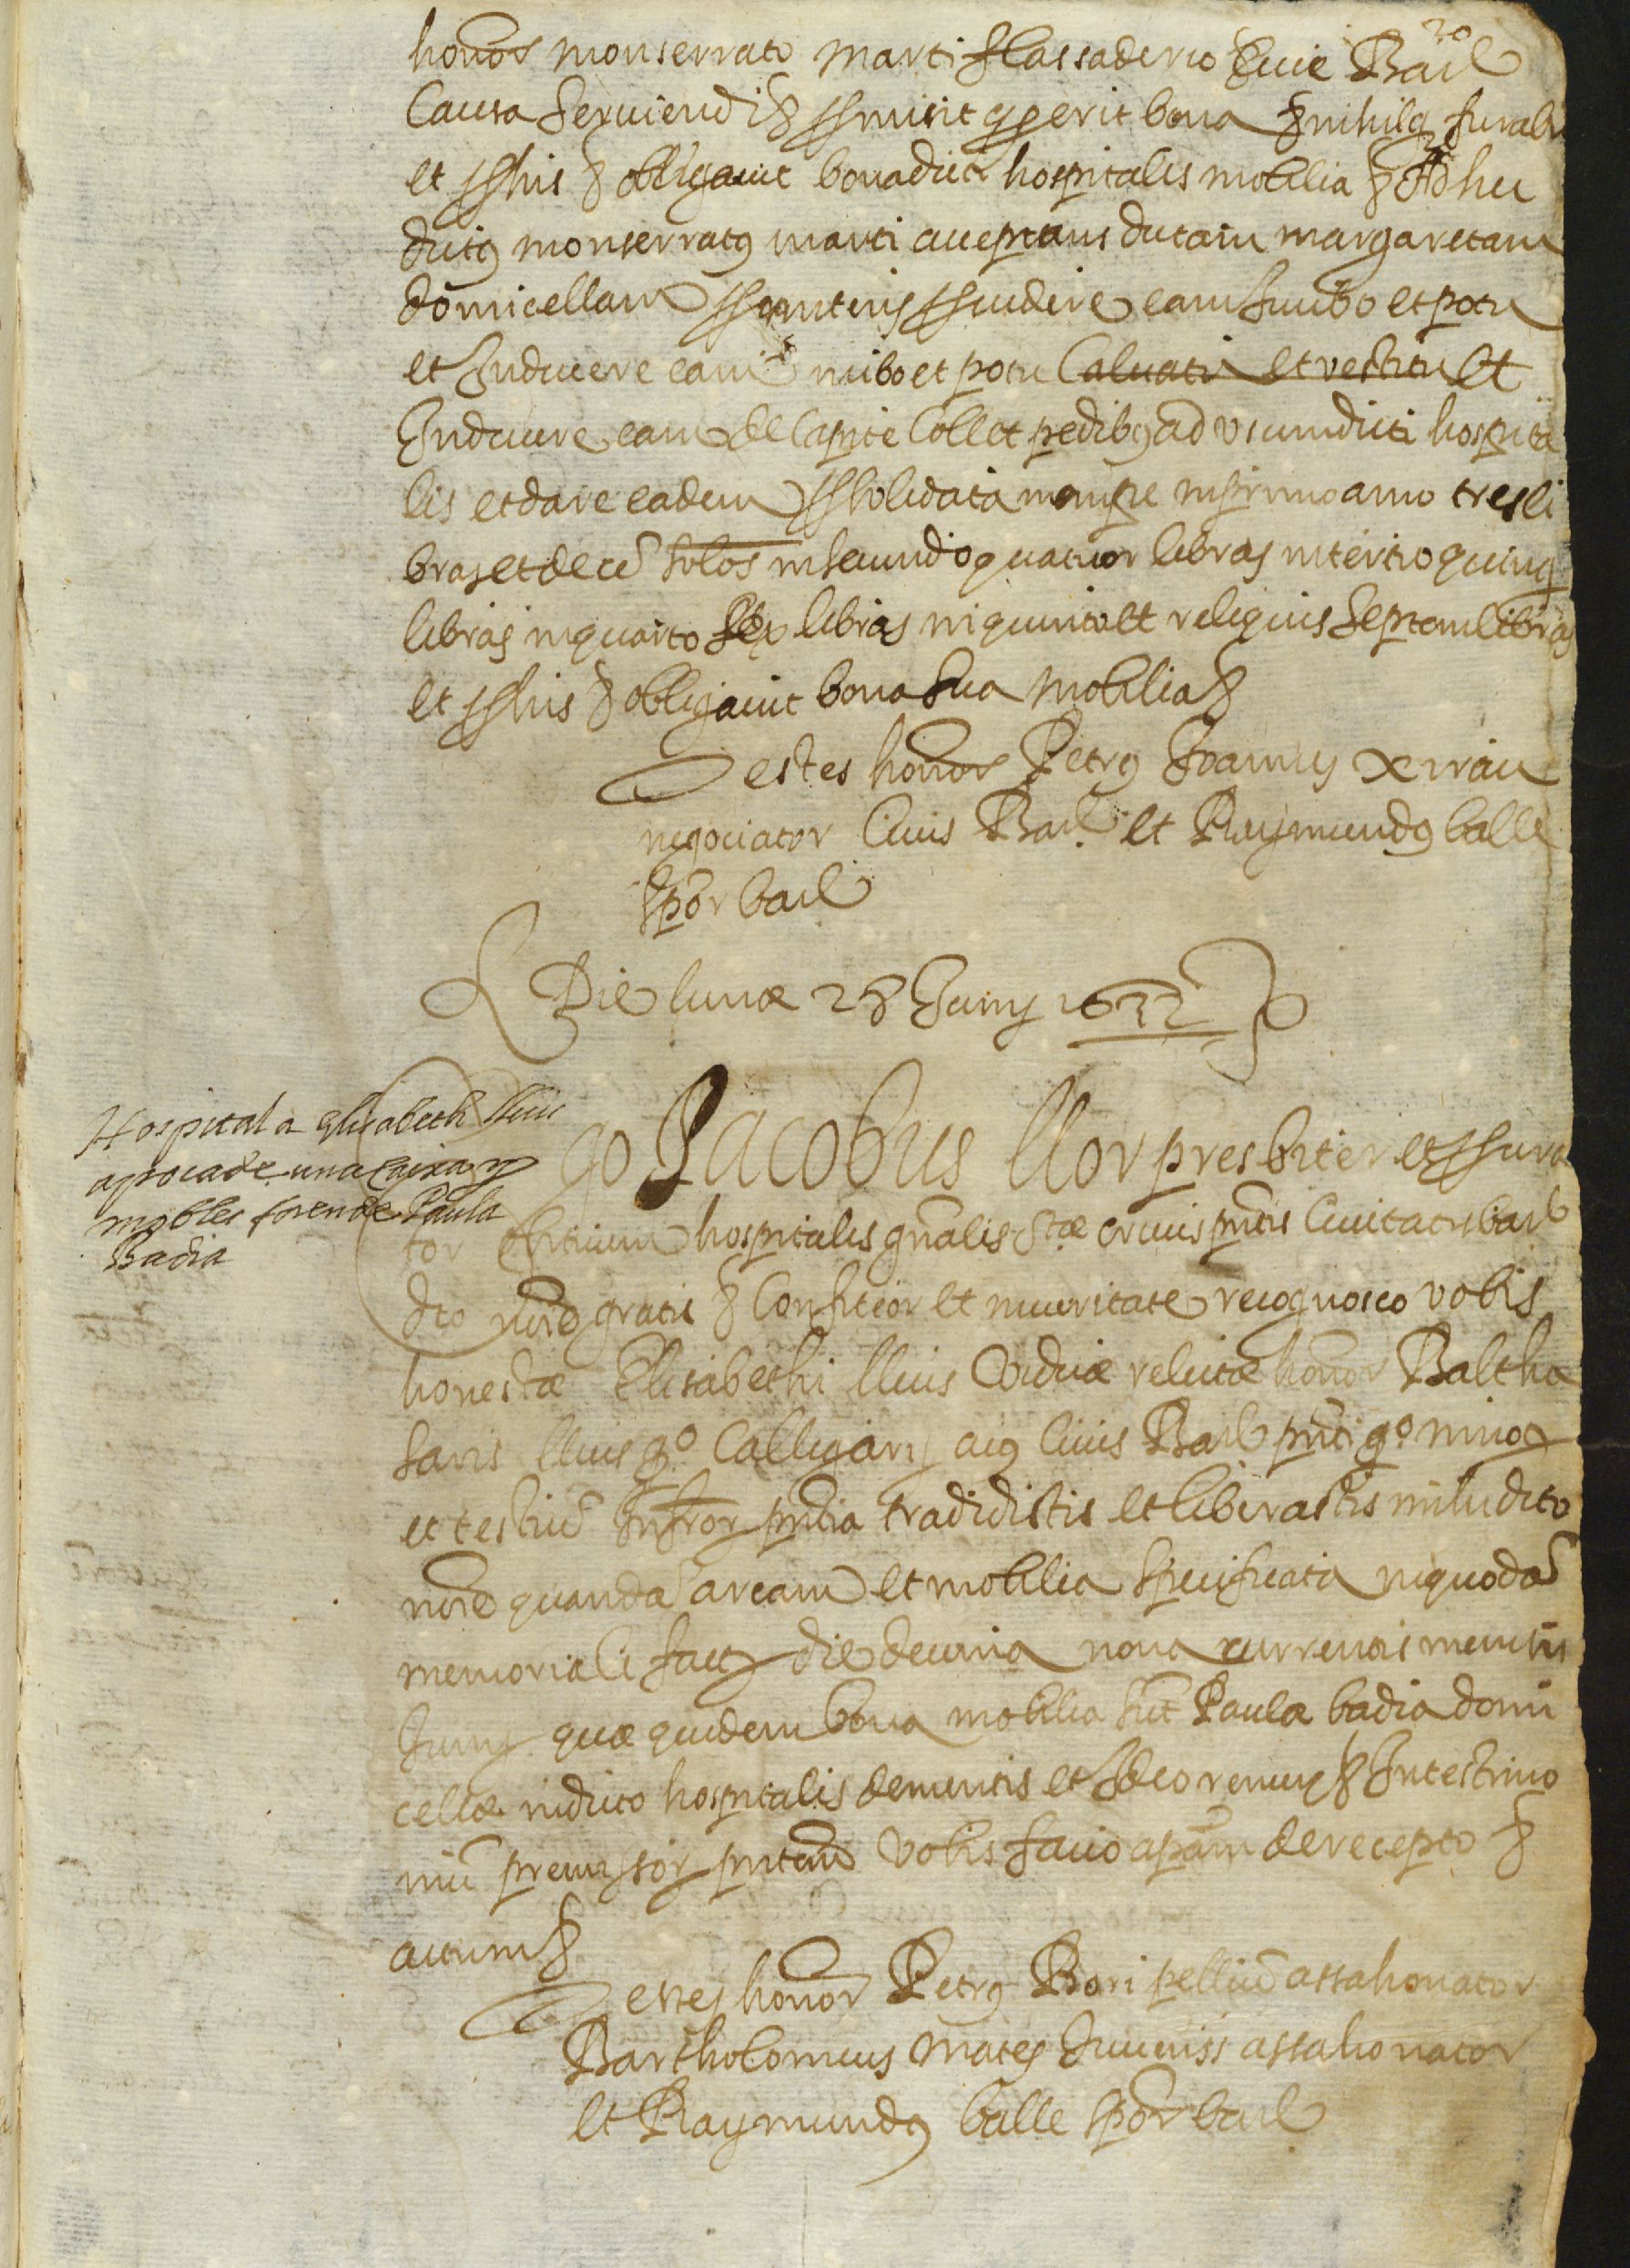 20
honor monserrato marti flassaderio Civi Bar
Causa serviendi & promisit q erit bona & nihil q furabi
et pro his & obligavit bona dict hospitalis mobilia & Ad hec
dictus monserratus marti acceptans dictam margaretam
domicellam promitens providere eam in cibo et potu
et Inducere eam in cibo et potu Calciatu et vestitu et
Inducere eam de capite Coll et pedibus ad usum dicti hospita
lis et dare eidem pro solidata in primo anno tres li
bras et decē solos in secundo quatuor libras in tertio quinq
libras in quarto sex libras in quinto et reliquis septem libras
et pro his & obligavit bona sua mobilia &
Testes honor Petrus Joannes Xirau
negociator Civis Bar. et Raymundus balle
scptor bar
Die lunæ 28 Junij 1632
Hospital a Elisabeth lluis
apoca de una caixa y
mobles foren de Paula
Badia
Ego Jacobus llor presbiter et procura
tor hospitalis gnalis Stæ crucis pntis Civitatis bar
dto noīe gratis & Confiteor et in veritate recognosco vobis
honestæ Elisabethi lluis viduæ relictæ honor Baltha
saris lluis q.º Calligarij civis Bar
et testiū Infror pntia tradidistis et liberastis mihi dicto
noīe quandā arcam et mobilia specificata in quodā
memoriali facto die decima nona currentis mensis
Junij quæ quidem bona mobilia sūt Paulæ badia domi
cellæ in dicto hospitalis dementis et Ideo renun & In testimo
niū premissor pntem vobis facio apām de recepto &
actum &
Testes honor Petrus Bori pelliū assahonator
Bartholomeus mates Juvenis assahonator
et Raymundus balle scptor bar